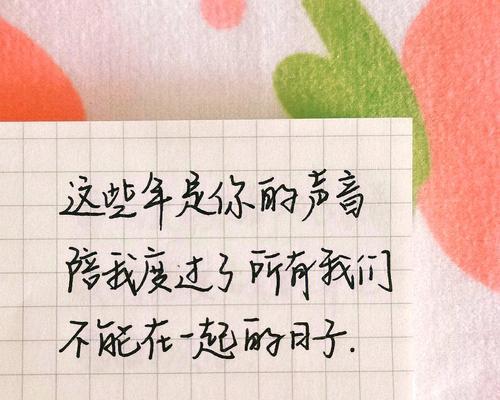 这些年是你的声音
陪我度过了所有我们
不能在一起的日子.